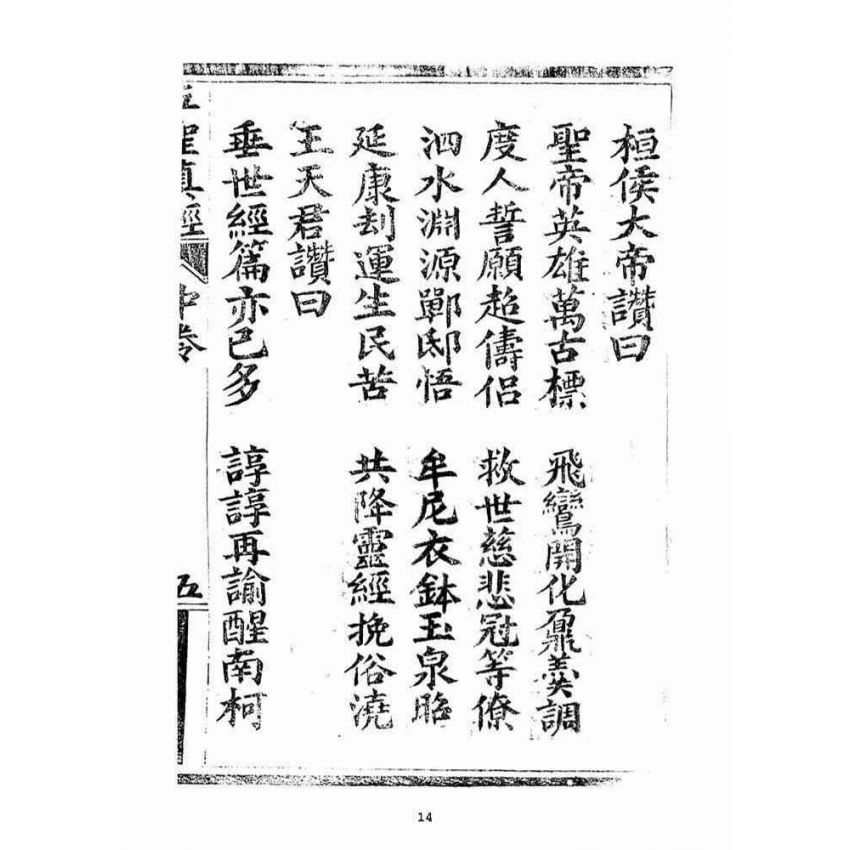 桓侯大帝讚曰
聖帝英雄萬古標 飛鸞開化鼐羹調
度人誓願超儔侣 救世慈悲冠等僚
泗水淵源鄲邸悟 牟尼衣鉢玉泉昭
延康刧運生民苦 共降靈經挽俗澆
王天君讚曰
垂世經篇亦已多 諄諄再諭醒南柯
聖真經 中卷
五
14